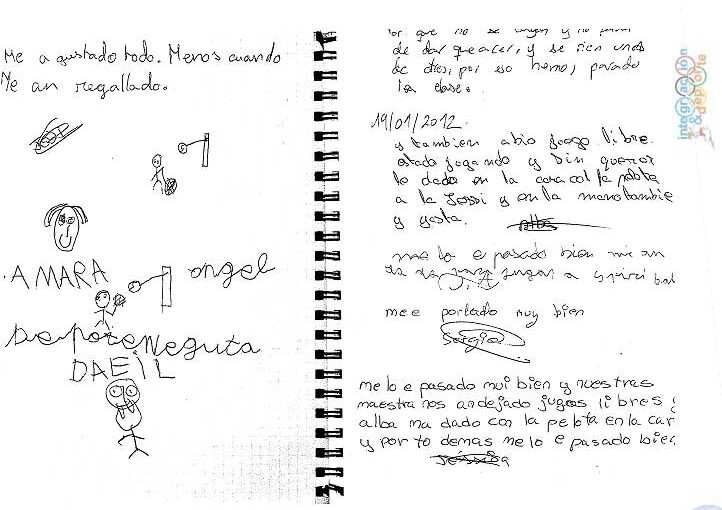 Me a gustado todo. Menos cuando
Me an regallado.
AMARA
angel
DAEIL
por que no se
de dar que acer, y se rien unos
de otros, por eso hemos parado
la clase.
19/01/2012.
y tambien abio juego libre.
estado jugando y sin querer
le dado en la cara con la pelota
a la Jessi y en la mano tambie
y yasta.
alba
me lo e pasado bien me an
jugar a
mee portado muy bien
Sergio
me lo e pasado mui bien y nuestras
maestra nos an dejado jugos libres
alba ma dado con la pelota en la car
y por to demas me lo e pasado bien
Jessica
integración
& deporte